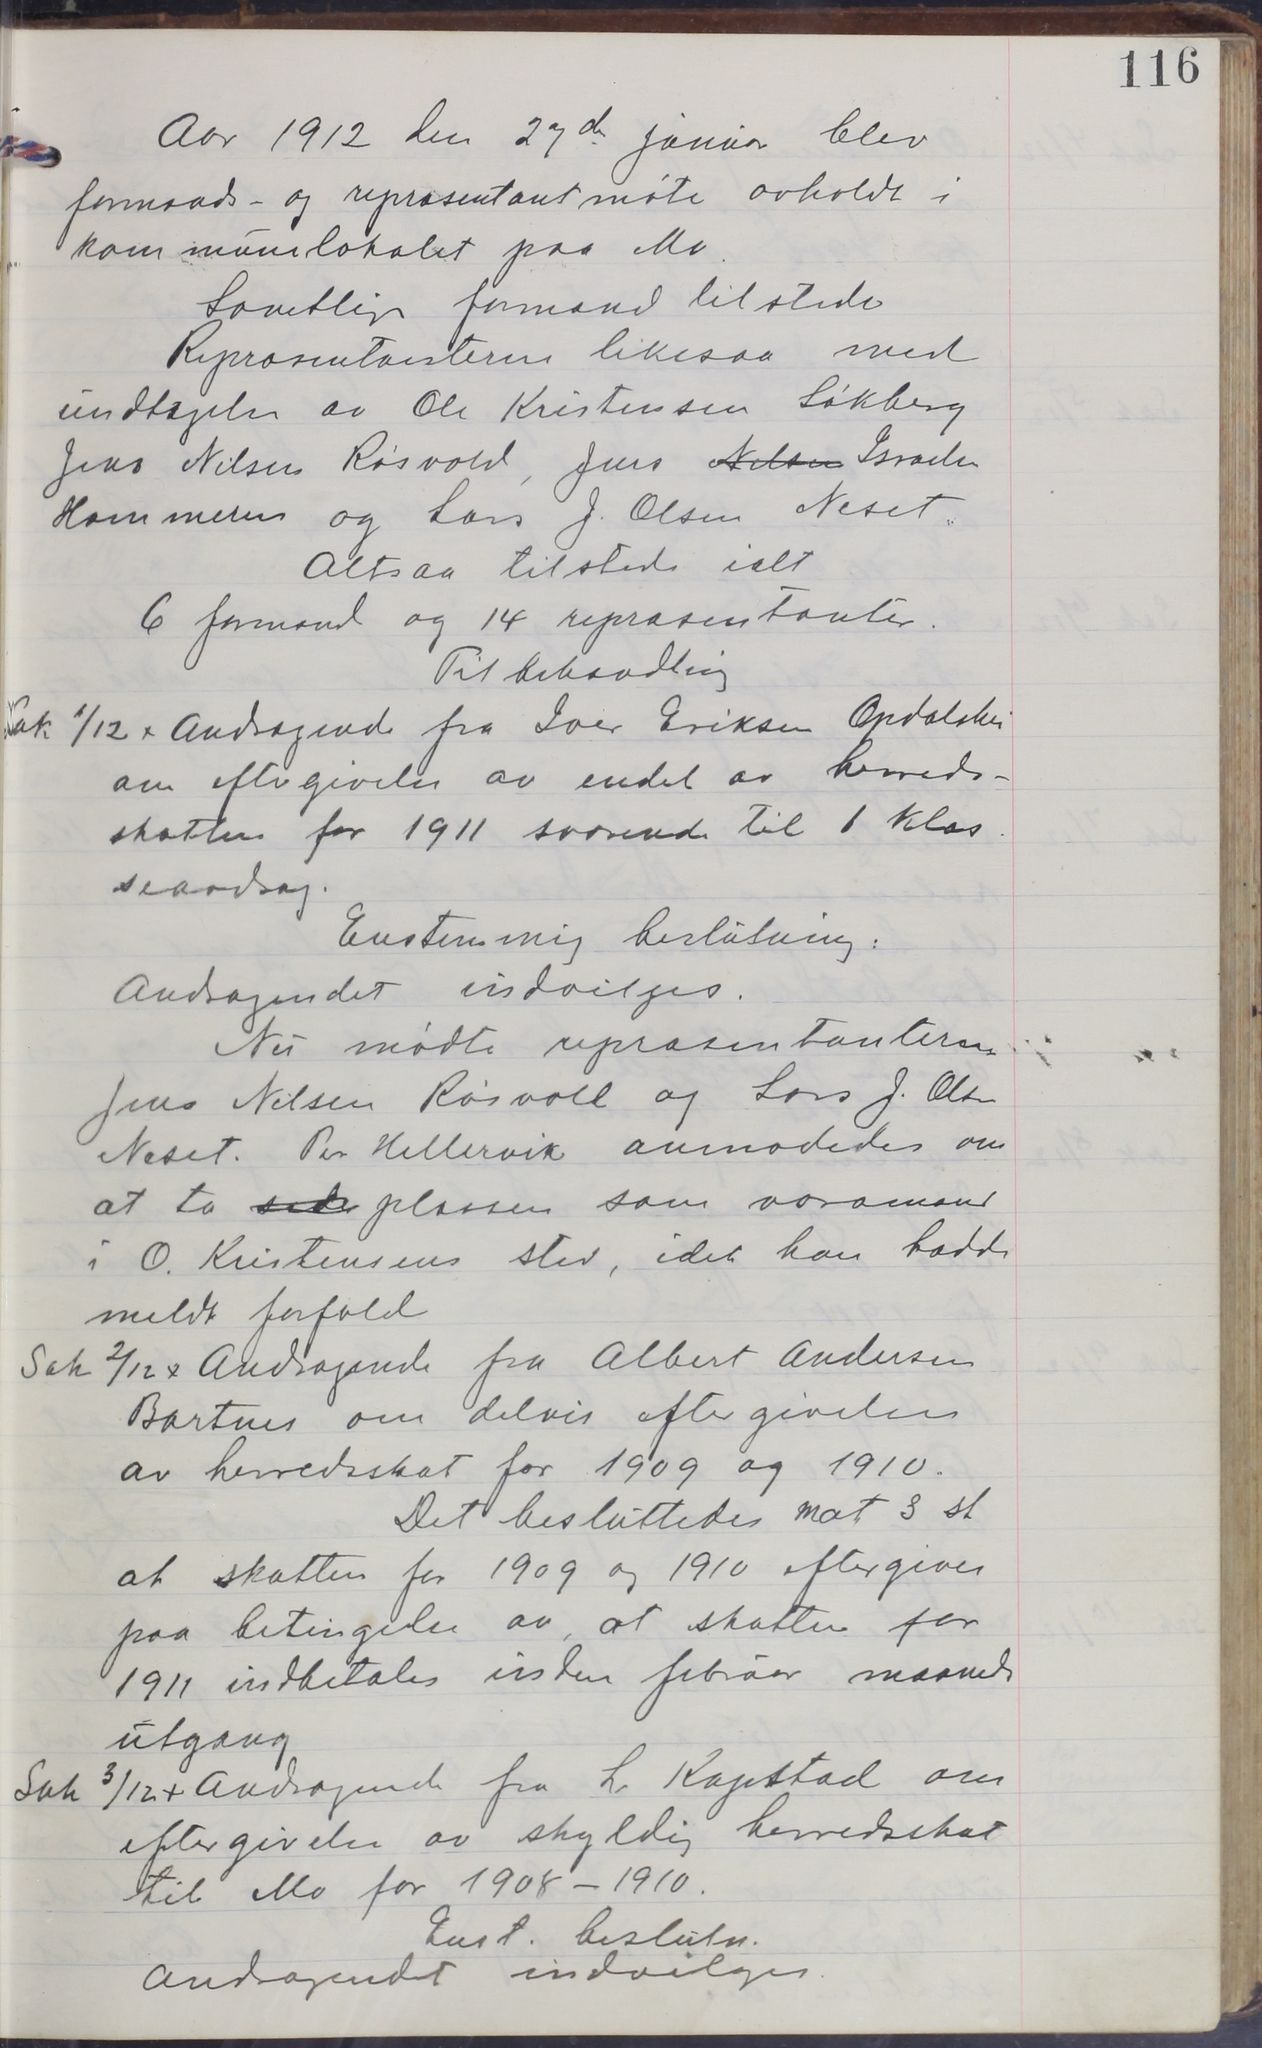 116
Aar 1912 den 27de januar blev
formands- og repræsentantmøte avholdt i
kommunelokalet paa Mo.
Samtlige formænd tilstede
Repræsentanterne likesaa med
undtagelse av Ole Kristensen Løkberg
Jens Nilsen Røsvold, Jens Nilsen Israelsen
Hammeren og Lars J. Olsen Neset.
Altsaa tilstede ialt
6 formænd og 14 repræsentanter.
Til behandling
Sak 1/12 x Andragende fra Iver Eriksen Opdalshei
om eftergivelse av endel av herreds-
skatten for 1911 svarende til 1 klas
seavdrag.
Enstemmig beslutning:
Andragendet indvilges.
Nu mødte repræsentanterne
Jens Nilsen Røsvold og Lars J. Olsen
Neset. Per Hellervik anmodedes om
at ta sede plassen som varamand
i O. Kristensens sted, idet han hadde
meldt forfald
Sak 2/12 x Andragende fra Albert Andersen
Bartnes om delvis eftergivelse
av herredsskat for 1909 og 1910.
Det besluttedes mot 3 st
at skatten for 1909 og 1910 eftergives
paa betingelse av, at skatten for
1911 indbetales inden februar maaneds
utgang
Sak 3/12 + Andragende fra L. Kapstad om
eftergivelse av skyldig herredsskat
til Mo for 1908-1910.
Enst. beslutn.
Andragendet indvilges.